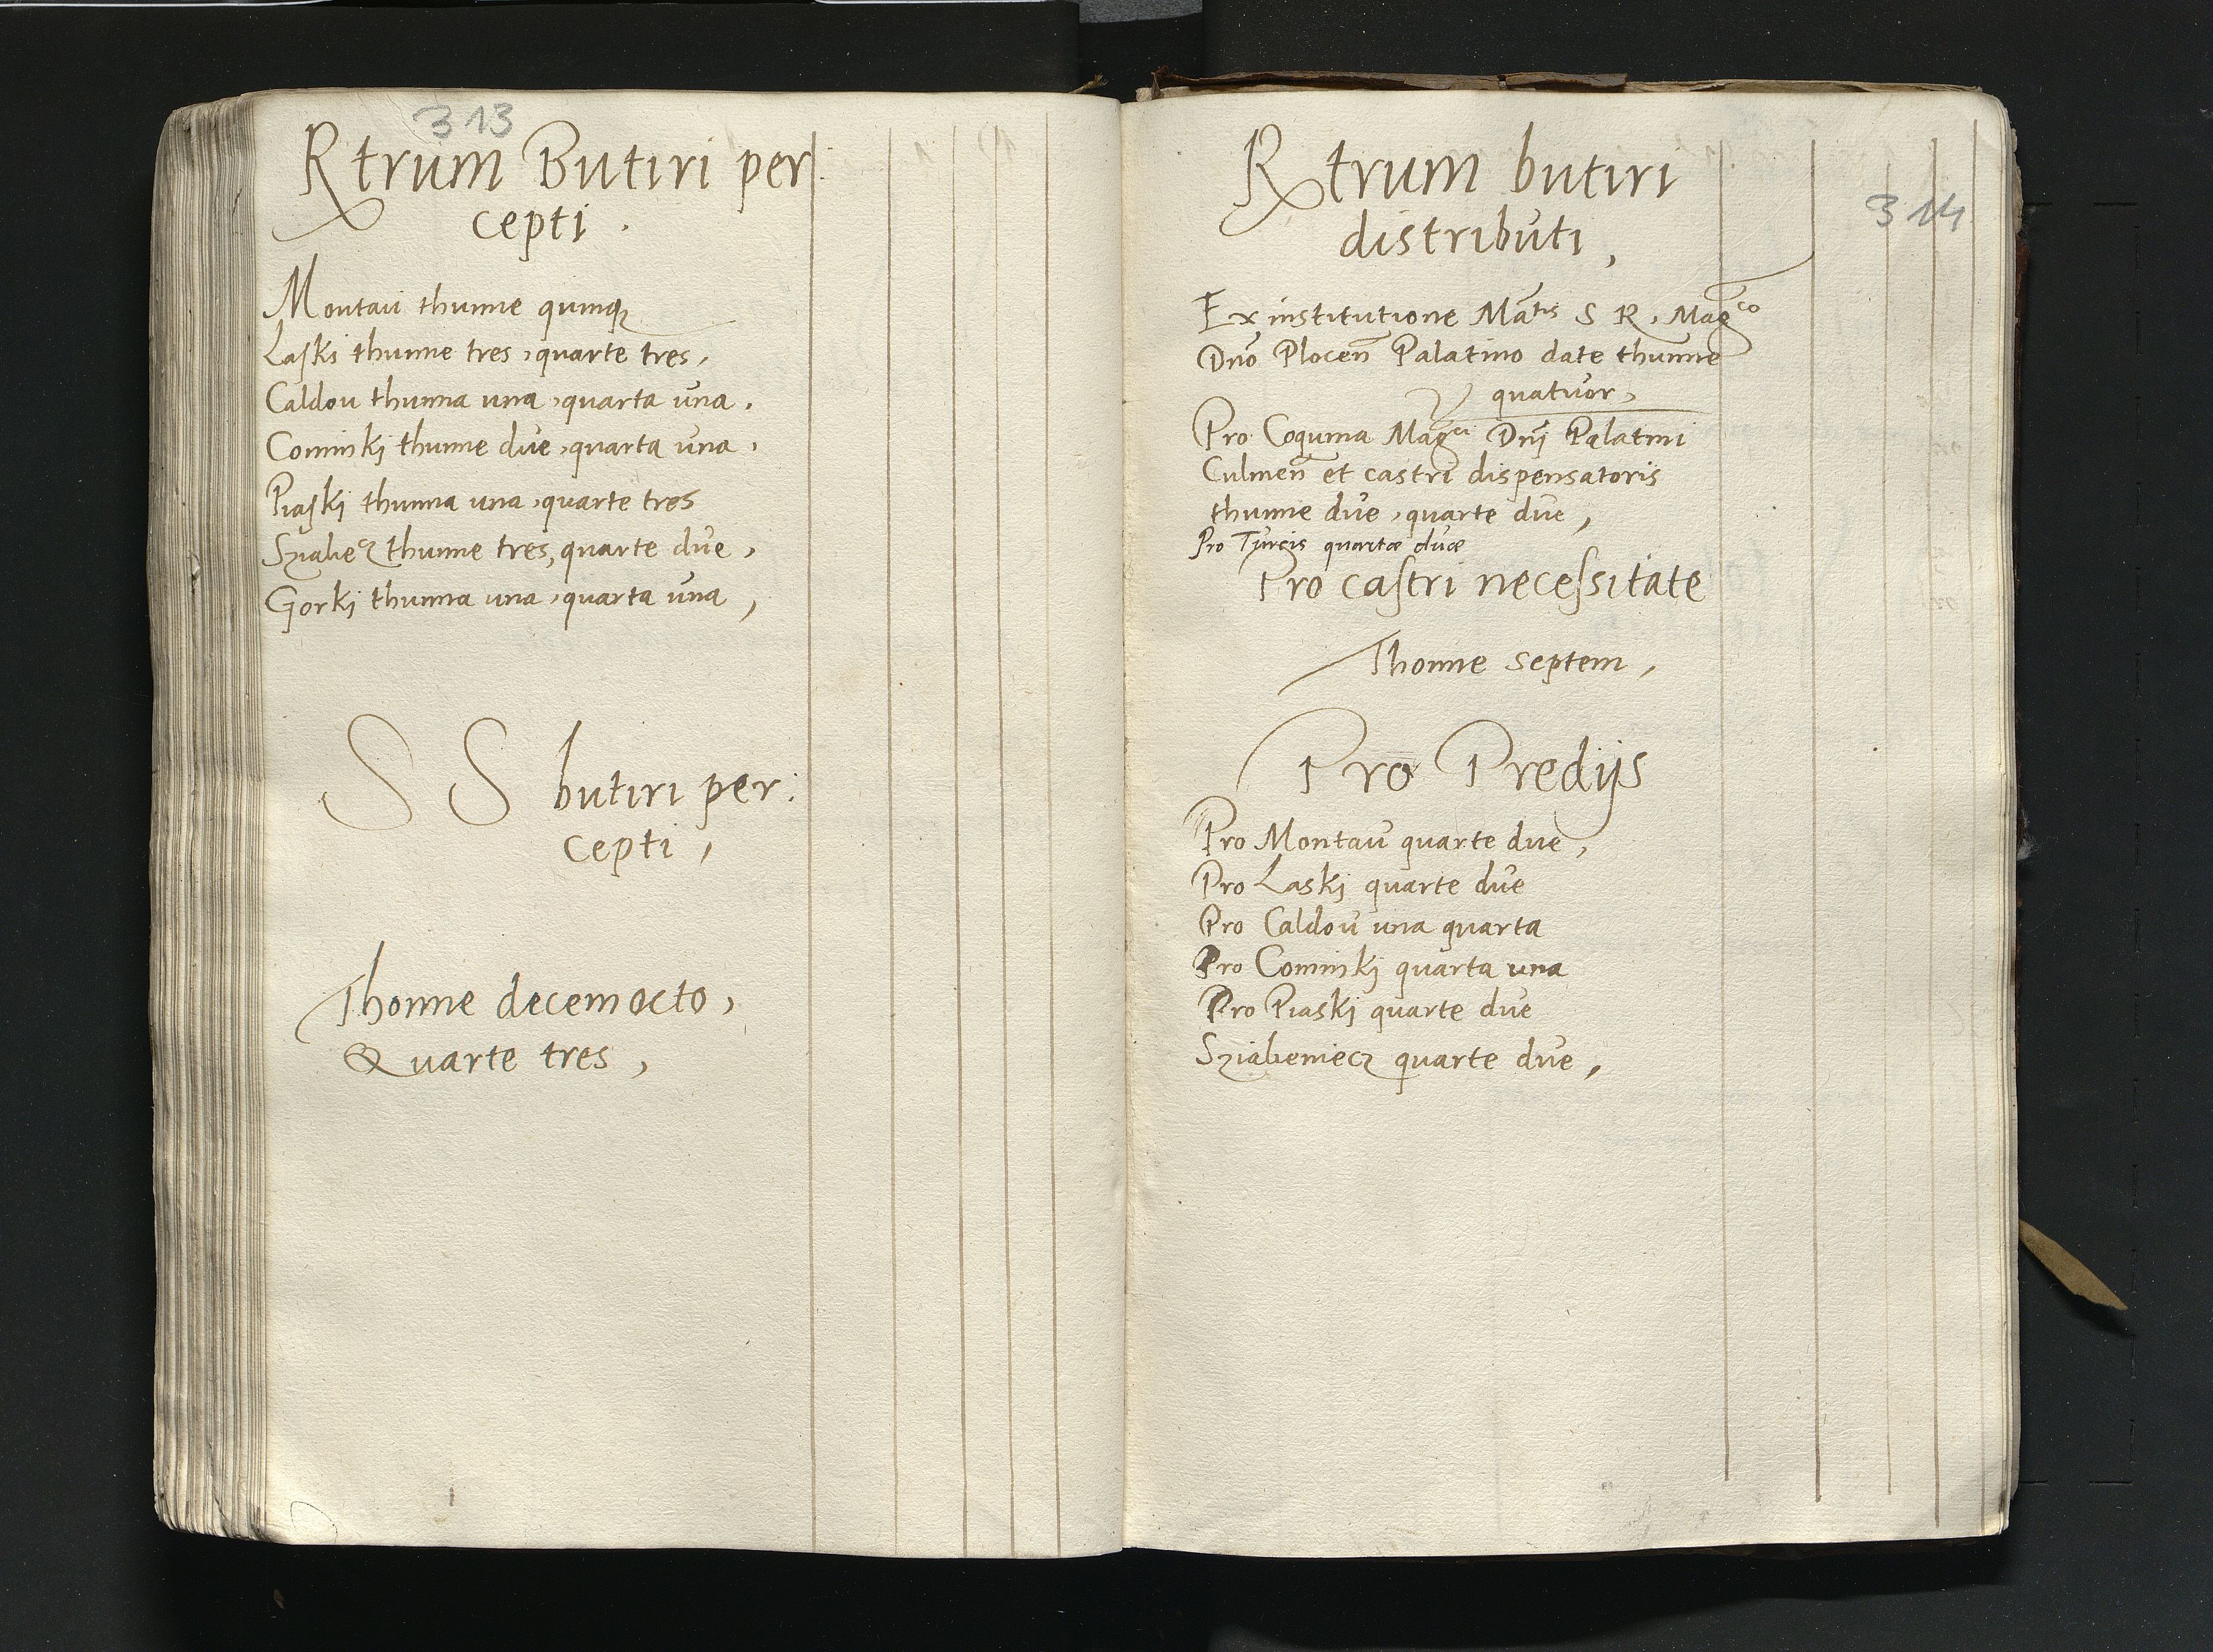 313
Rtrum Butiri per
cepti.
Montau thunne quinq
Laski thunne tres, quarte tres,
Caldou thunna una, quarta una.
Cominkj thunne due, quarta una,
Piaskj thunna una, quarte tres
thunne tres, quarte due,
Gorkj thunna una, quarta una,
S S butiri per:
cepti,
Thonne decemocto,
Quarte tres,
314
Rtrum butiri
distributi,
Ex institutione Matis S R. Magco
Dno Plocen Palatino date thunne
quatuor,
Pro Coquina Magci Dnj Palatini
Culmen et castri dispensatoris
thunne due, quarte due,
Pro Turcis quartæ duæ
Pro castri necessitate
Thonne septem,
Pro Predijs
Pro Montau quarte due,
Pro Laskj quarte due
Pro Caldou una quarta
Pro Cominkj quarta una
Pro Piaskj quarte due
quarte due,